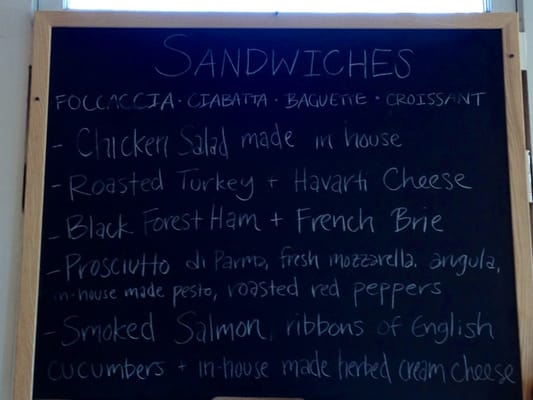 SANDWICHES
FOCCACCIA · CIABATTA · BAGUETTE · CROISSANT
- Chicken Salad made in house
- Roasted Turkey + Havarti Cheese
- Black Forest Ham + French Brie
- Prosciutto di Parma, fresh mozzarella, arugula,
in-house made pesto, roasted red peppers
- Smoked Salmon, ribbons of English
cucumbers + in-house made herbed cream cheese